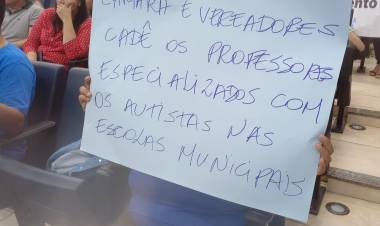 CÂMARA E VEREADORES
CADÊ OS PROFESSORES
ESPECIALIZADOS COM
OS AUTISTAS NAS
ESCOLAS MUNICIPAIS